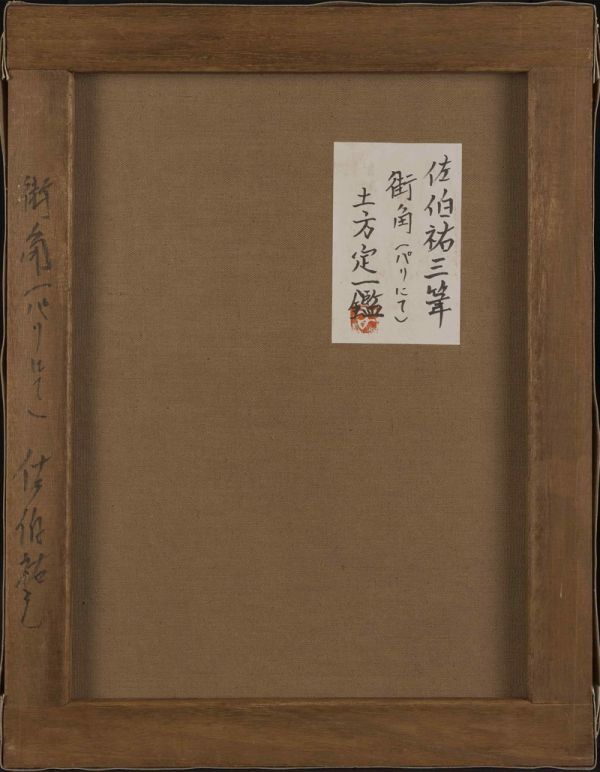 佐伯祐三筆
街角(パリにて)
土方定一鑑
街角(パリにて) 佐伯祐三